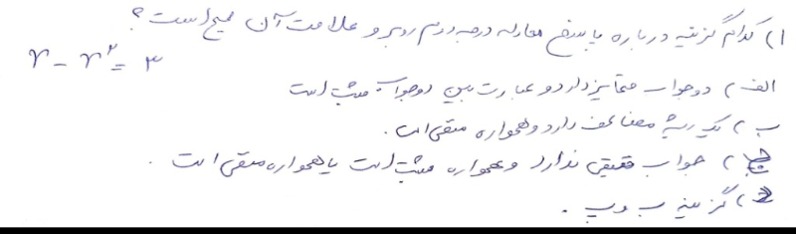 ۱) کدام گزینه درباره پاسخ معادله درجه دوم روبرو و علامت آن صحیح است؟
x - x² = ۳
الف) دو جواب متمایز دارد و عبارت بین دو جواب مثبت است
ب) یک ریشه مضاعف دارد و همواره منفی است.
ج) جواب حقیقی ندارد و همواره مثبت است یا همواره منفی است.
د) گزینه ب و پ.